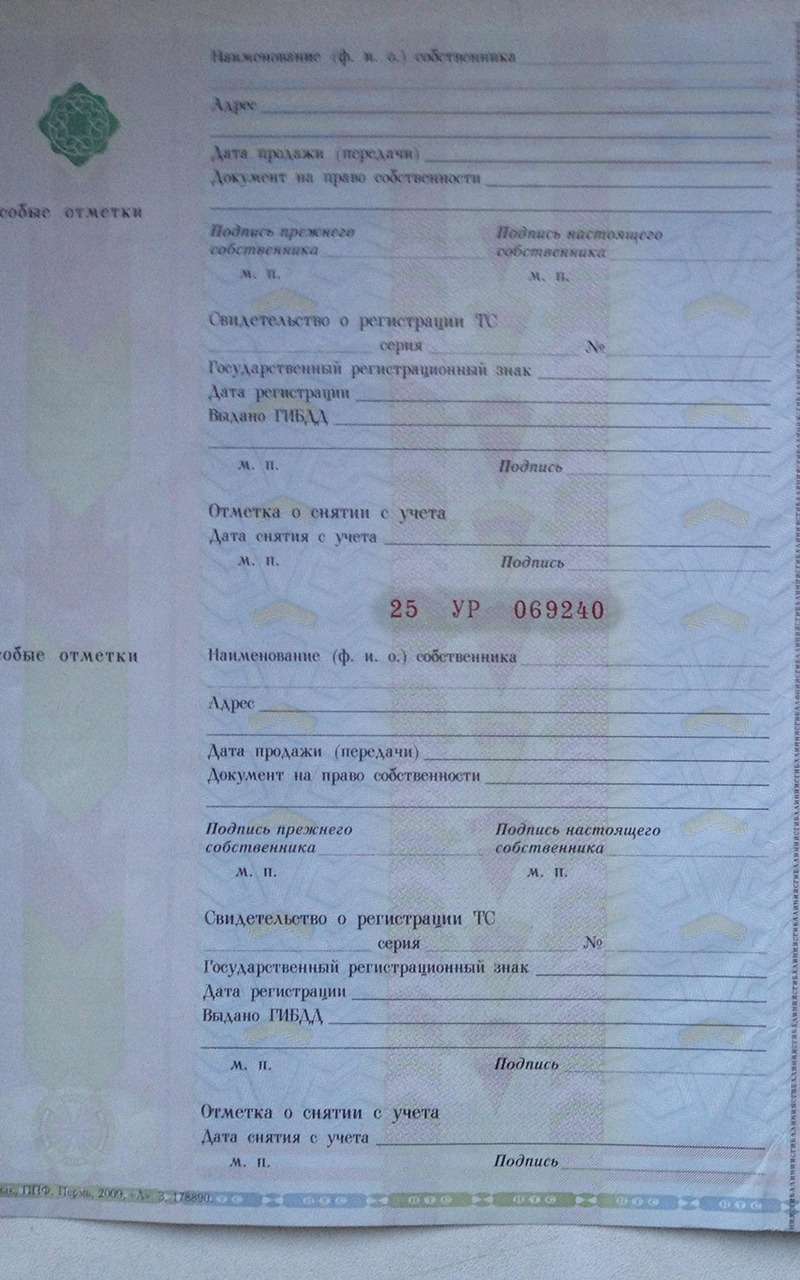 Наименование (ф. и. о.) собственника
Адрес
Дата продажи (передачи)
Документ на право собственности
особые отметки
Подпись прежнего собственника
Подпись настоящего собственника
м. п.
м. п.
Свидетельство о регистрации ТС
серия №
Государственный регистрационный знак
Дата регистрации
Выдано ГИБДД
м. п. Подпись
Отметка о снятии с учета
Дата снятия с учета
м. п. Подпись
25 УР 069240
особые отметки
Наименование (ф. и. о.) собственника
Адрес
Дата продажи (передачи)
Документ на право собственности
Подпись прежнего собственника
Подпись настоящего собственника
м. п.
м. п.
Свидетельство о регистрации ТС
серия №
Государственный регистрационный знак
Дата регистрации
Выдано ГИБДД
м. п. Подпись
Отметка о снятии с учета
Дата снятия с учета
м. п. Подпись
ППФ. Пермь, 2009, «А» З. 178890.